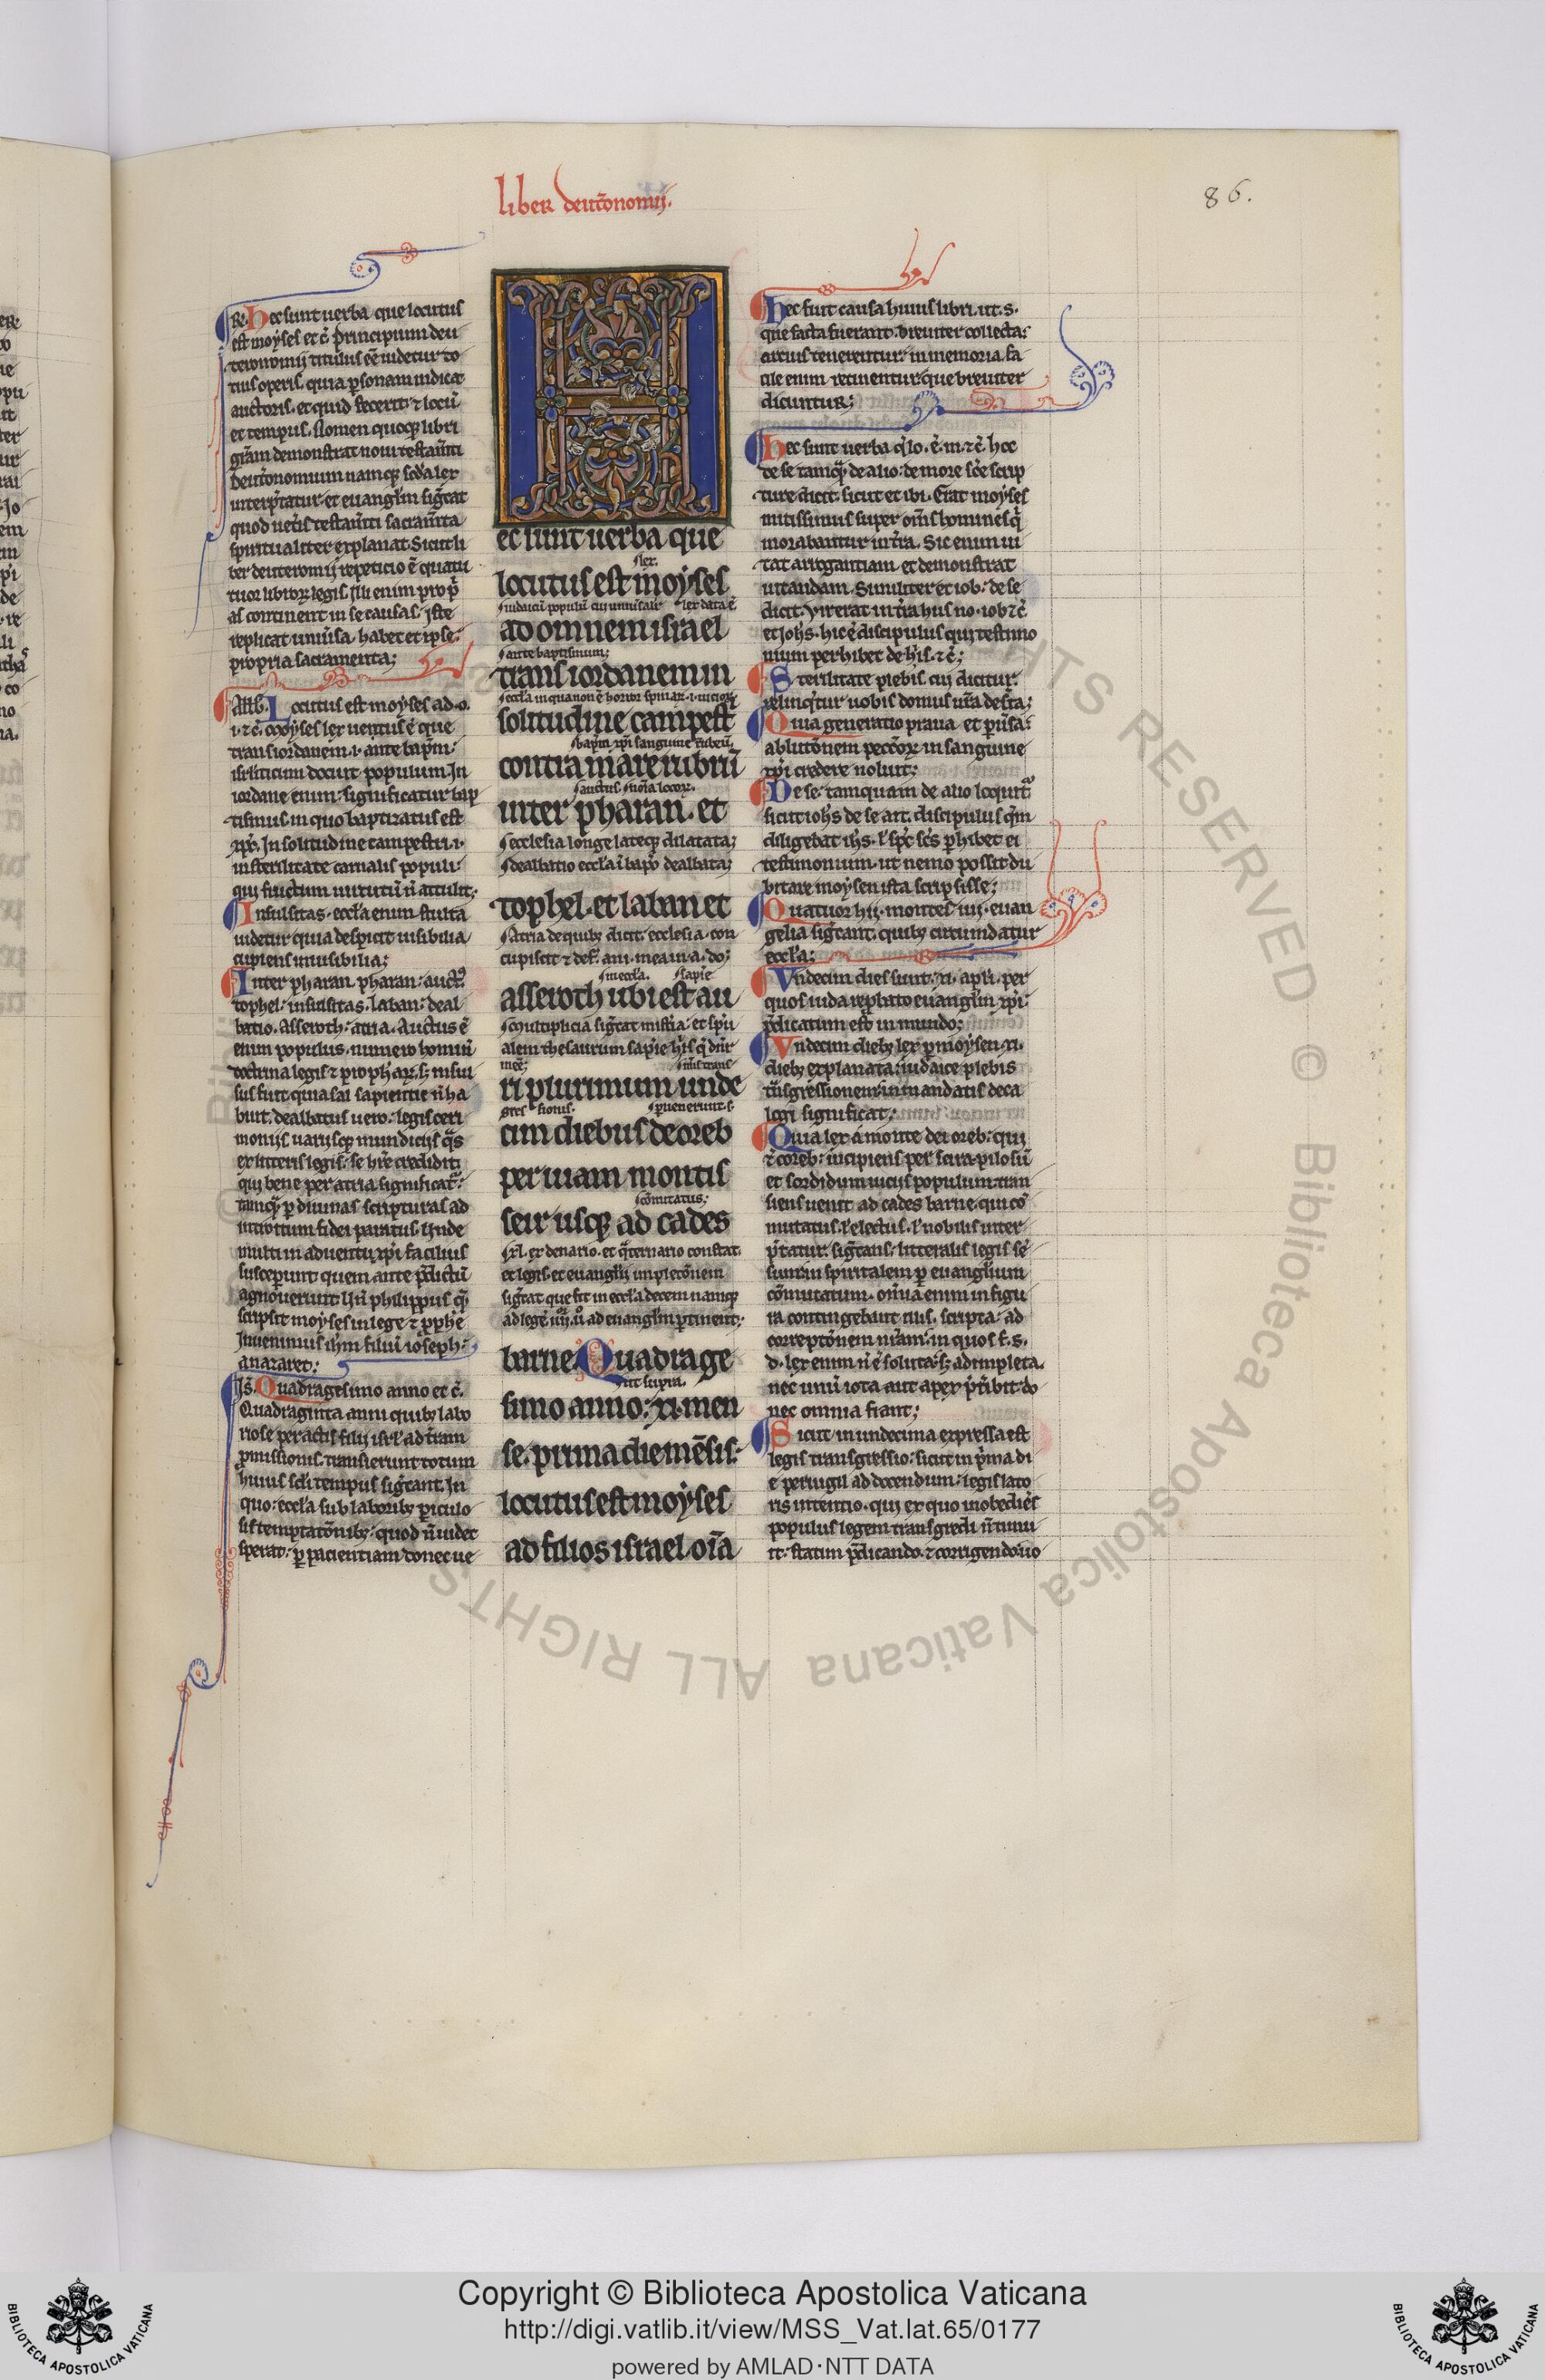 liber deut̄onomij.
86.
Re. Hec sunt uerba que locutus
est moyses et c̄. Principium deu
teronomij titulus ē uidetur to
tius operis. quia p̱sonam indicat
auctoris. et quid fecerit. ⁊ locū
et tempus. Nomen quoq; libri
gr̄am demonstrat noui testam̄ti
Deut̄onomium namq; sc̄da lex
interp̄tatur. et euangl̄m siḡcat
quod uet̄is testam̄ti sacram̄ta
spiritualiter explanat. Sicut li
ber deuteromij repeticio ē quatu
tuor libroꝝ legis. Illi enim prop̄
as continent in se causas. Iste
replicat uniu̓sa. habet et ipse
propria sacramenta;
Locutus est moyses ad .o.
.i. ⁊ c̄. Moyses lex uentus ē que
trans iordanem .i. ante bap̄m
isrl̓iticum docuit populum. In
iordane enim significatur bap
tismus. in quo baptizatus est
xp̄c. In solitudine campestri .i.
in sterilitate carnalis populi.
qui fructum uirtutū n̄ attulit;
Insulsitas. eccl̓a enim stulta
uidetur quia despicit uisibilia
cupiens inuisibilia;
Inter pharan. pharan: auct᷒.
tophel: insulsitas. laban: deal
batio. Asseroth: atria. Auctus ē
enim populus. numero hominū
doctrina legis ⁊ proph̄aꝝ. s; insul
sus fuit. quia sal sapientie n̄ ha
buit. dealbatus uero: legis ceri
monijs uarijsq; mundicijs. q̄s
ex litteris legis: se h̄re credidit.
qui bene per atria significat᷑.
tamq̄ p̱ diuinas scripturas ad
introitum fidei paratus. Unde
multi in aduentu xp̄i facilius
susceperunt. quem ante p̄dictū
agnouerunt. Un̄ philippus. q̄
scripsit moyses in lege ⁊ p̱ph̄e
Inuenimus ih̄m filiū ioseph:
a nazaret;
Is̄. Quadragesimo anno et c̄.
Quadraginta anni quib; labo
riose peractis filij isrl̓ ad t̄ram
p̱missionis transierunt: totum
huius sc̄li tempus siḡcant. In
quo: eccl̓a sub laborib; p̱iculo
sis temptatōnib;. quod n̄ uidet
sperat: p̱ pacientiam donec ue
Hec sunt uerba que
lex.
locutus est moyses
iudaicū populū cui uniu̓salr̄ lex data ē
ad omnem israel
ante baptismum;
trans iordanem in
solitudine campest
bap̄m xp̄i sanguine rubeū.
contra mare rubrū
auctus. noīa locoꝝ.
inter pharan. et
ecclesia longe lateq; dilatata;
dealbatio eccl̓a ī bap̄o dealbata;
tophel. et laban et
Atria de quib; dicit. ecclesia. con
cupiscit ⁊ def. ani. mea in .a. do;
in eccl̓a. sapīe
asseroth ubi est au
Multiplicia siḡcat mist̓ia: et sp̄u
alem thesaurum sapīe
ri plurimum unde
cim diebus de oreb
per uiam montis
comitatus;
seir usq; ad cades
xl. ex denario. et q̄ternario constat.
et legis. et euangl̓ij impletōnem
siḡcat que fit in eccl̓a. decem namq;
ad legē iiij. u̓o ad euangl̓m p̱tinent;
barne. Quadrage
ut supra.
simo anno: xi. men
se. prima die mēsis:
locutus est moyses
ad filios israel oīa
Hec fuit causa huius libri. ut .s.
que facta fuerant. breuiter collecta:
artius tenerentur. in memoria. fa
cile enim retinentur que breuiter
dicuntur;
Hec sunt uerba q̄ lo. ē .m. ⁊ c̄. hoc
de se tamq̄ de alio: de more sc̄e scrip
ture dicit. sicut et ibi. Erat moyses
mitissimus super om̄s homines q̄
morabantur in t̄ra. Sic enim ui
tat arrogantiam. et demonstrat
uitandam. Similiter et iob: de se
dicit. Vir erat in t̄ra hus no. iob ⁊ c̄
et joh̄s. hic ē discipulus qui testimo
nium perhibet de his. ⁊ c̄;
Sterilitate plebis. cui dicitur.
relinq̄tur uobis domus ur̄a des̄ta;
Quia generatio praua et pu̓sa:
ablutōnem peccōꝝ in sanguine
xp̄i credere noluit;
De se: tamquam de alio loquit᷑
sicut ioh̄s de se ait. discipulus q̄m
diligebat ih̄s. l̓ sp̄c sc̄s p̱hibet ei
testimonium. ut nemo possit du
bitare moysen ista scripsisse;
Quatuor hij. montes iiij. euan
gelia siḡcant. quib; circumdatur
eccl̓a;
Vndecim dies sunt: xi. apl̓i. per
quos iuda rep̱bato euangl̓m xp̄i:
p̄dicatum est in mundo;
Vndecim dieb; lex p̱ moysen .xi.
dieb; explanata: iudaice plebis
t̄nsgressionem in mandatis deca
logi significat;
Quia lex a monte dei oreb: qui
⁊ coreb: incipiens per seir a piloSū
et sordidum uicijs populum tran
siens uenit ad cades barne. qui cō
mutatus. l̓ electus. l̓ nobilis inter
p̄tatur. siḡcans: litteralis legis sē
sum in spiritalem p̱ euangl̓ium
cōmutatum. om̄ia enim in figu
ra contingebant illis. scripta: ad
correptōnem nr̄am: in quos f. s.
d. lex enim n̄ ē soluta: s; adimpleta.
nec unū iota aut apex p̄t̓ibit do
nec omnia fiant;
Sicut in undecima expressa est
legis transgressio: sicut in p̄ma di
e peruigil ad docendum: legis lato
ris intentio. qui ex quo inobediēs
populus legem transgredi n̄ timu
it: statim p̄dicando. ⁊ corrigendo uo
Copyright © Biblioteca Apostolica Vaticana
http://digi.vatlib.it/view/MSS_Vat.lat.65/0177
powered by AMLAD·NTT DATA
BIBLIOTECA APOSTOLICA VATICANA
BIBLIOTECA APOSTOLICA VATICANA
ALL RIGHTS RESERVED © Biblioteca Apostolica Vaticana